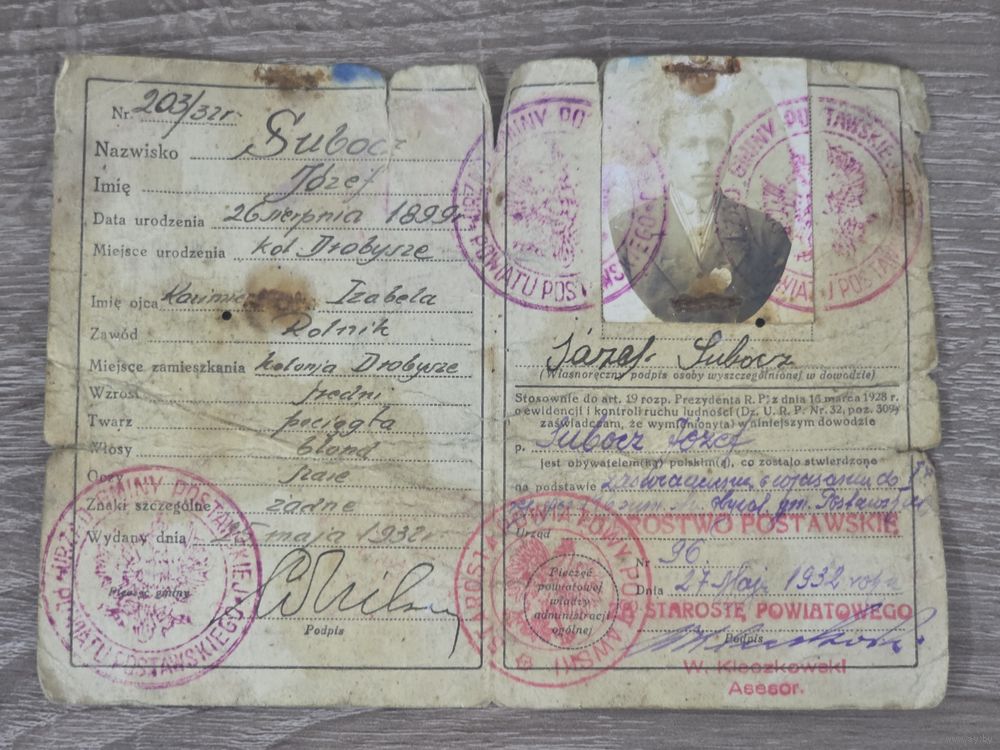 Nr. 203/32r.
Nazwisko Subocz
Imię Józef
Data urodzenia 26 sierpnia 1899r
Miejsce urodzenia kol. Drobysze
Imię ojca Izabela
Zawód Rolnik
Miejsce zamieszkania Kolonja Drobysze
Wzrost średni
Twarz pociągła
Włosy blond
Oczy
Znaki szczególne żadne
Wydany dnia 25 maja 1932r
Pieczęć gminy
Podpis
URZĄD GMINY POSTAWSKIEJ
POWIATU POSTAWSKIEGO
Józef Subocz
(Własnoręczny podpis osoby wyszczególnionej w dowodzie)
Stosownie do art. 19 rozp. Prezydenta R. P. z dnia 16 marca 1928 r.
o ewidencji i kontroli ruchu ludności (Dz. U. R. P. Nr. 32, poz. 309)
zaświadczam, że wymieniony(a) w niniejszym dowodzie
p. Subocz Józef
jest obywatelem(ką) polskim(ą), co zostało stwierdzone
na podstawie
gm. Postawskiej
STAROSTWO POSTAWSKIE
Urząd
Nr 96
Dnia 27 Maja 1932 roku
Pieczęć
powiatowej
władzy
administracji
ogólnej
ZA STAROSTĘ POWIATOWEGO
Podpis
W. Kleczkowski
Asesor.
www.ay.by